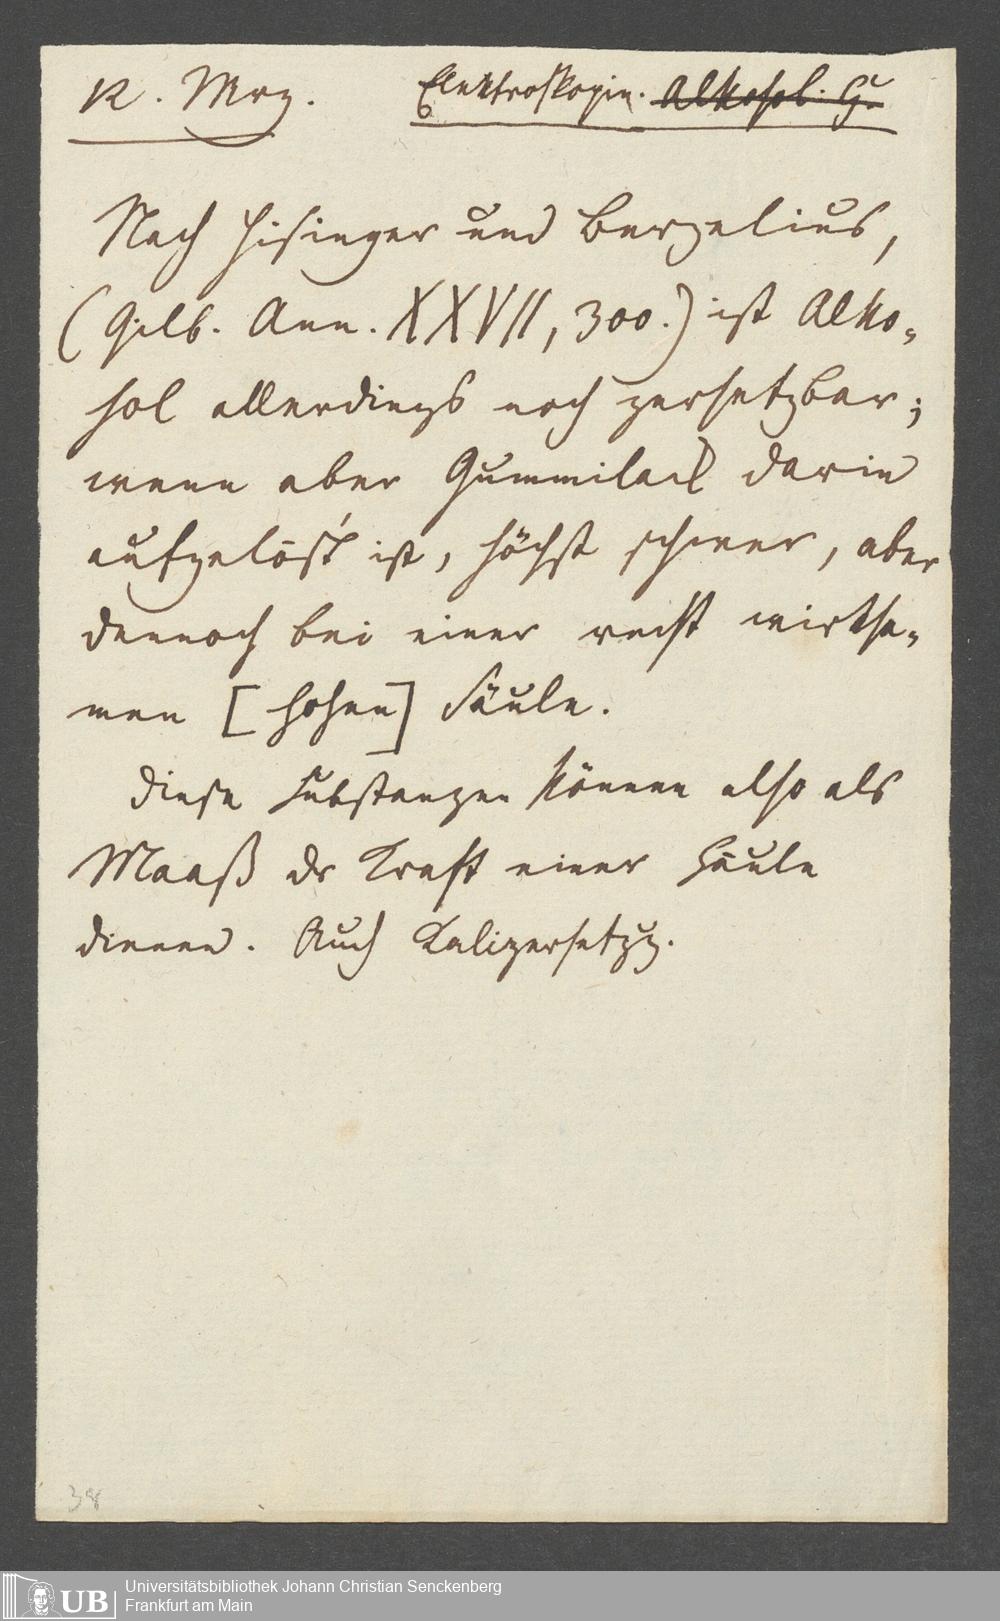 K. Mrz. Elektroskopie. Alkohol. G
Nach Hisinger und Berzelius,
(Gilb. Ann. XXVII, 300.) ist Alko-
hol allerdings noch zersetzbar;
wenn aber Gummilack darin
aufgelöst ist, höchst schwer, aber
dennoch bei einer recht wirksa-
men [hohen] Säule.
Diese Substanzen können also als
Maaß dr Kraft einer Säule
dienen. Auch Kalizersetzg.
38
UB Universitätsbibliothek Johann Christian Senckenberg
Frankfurt am Main